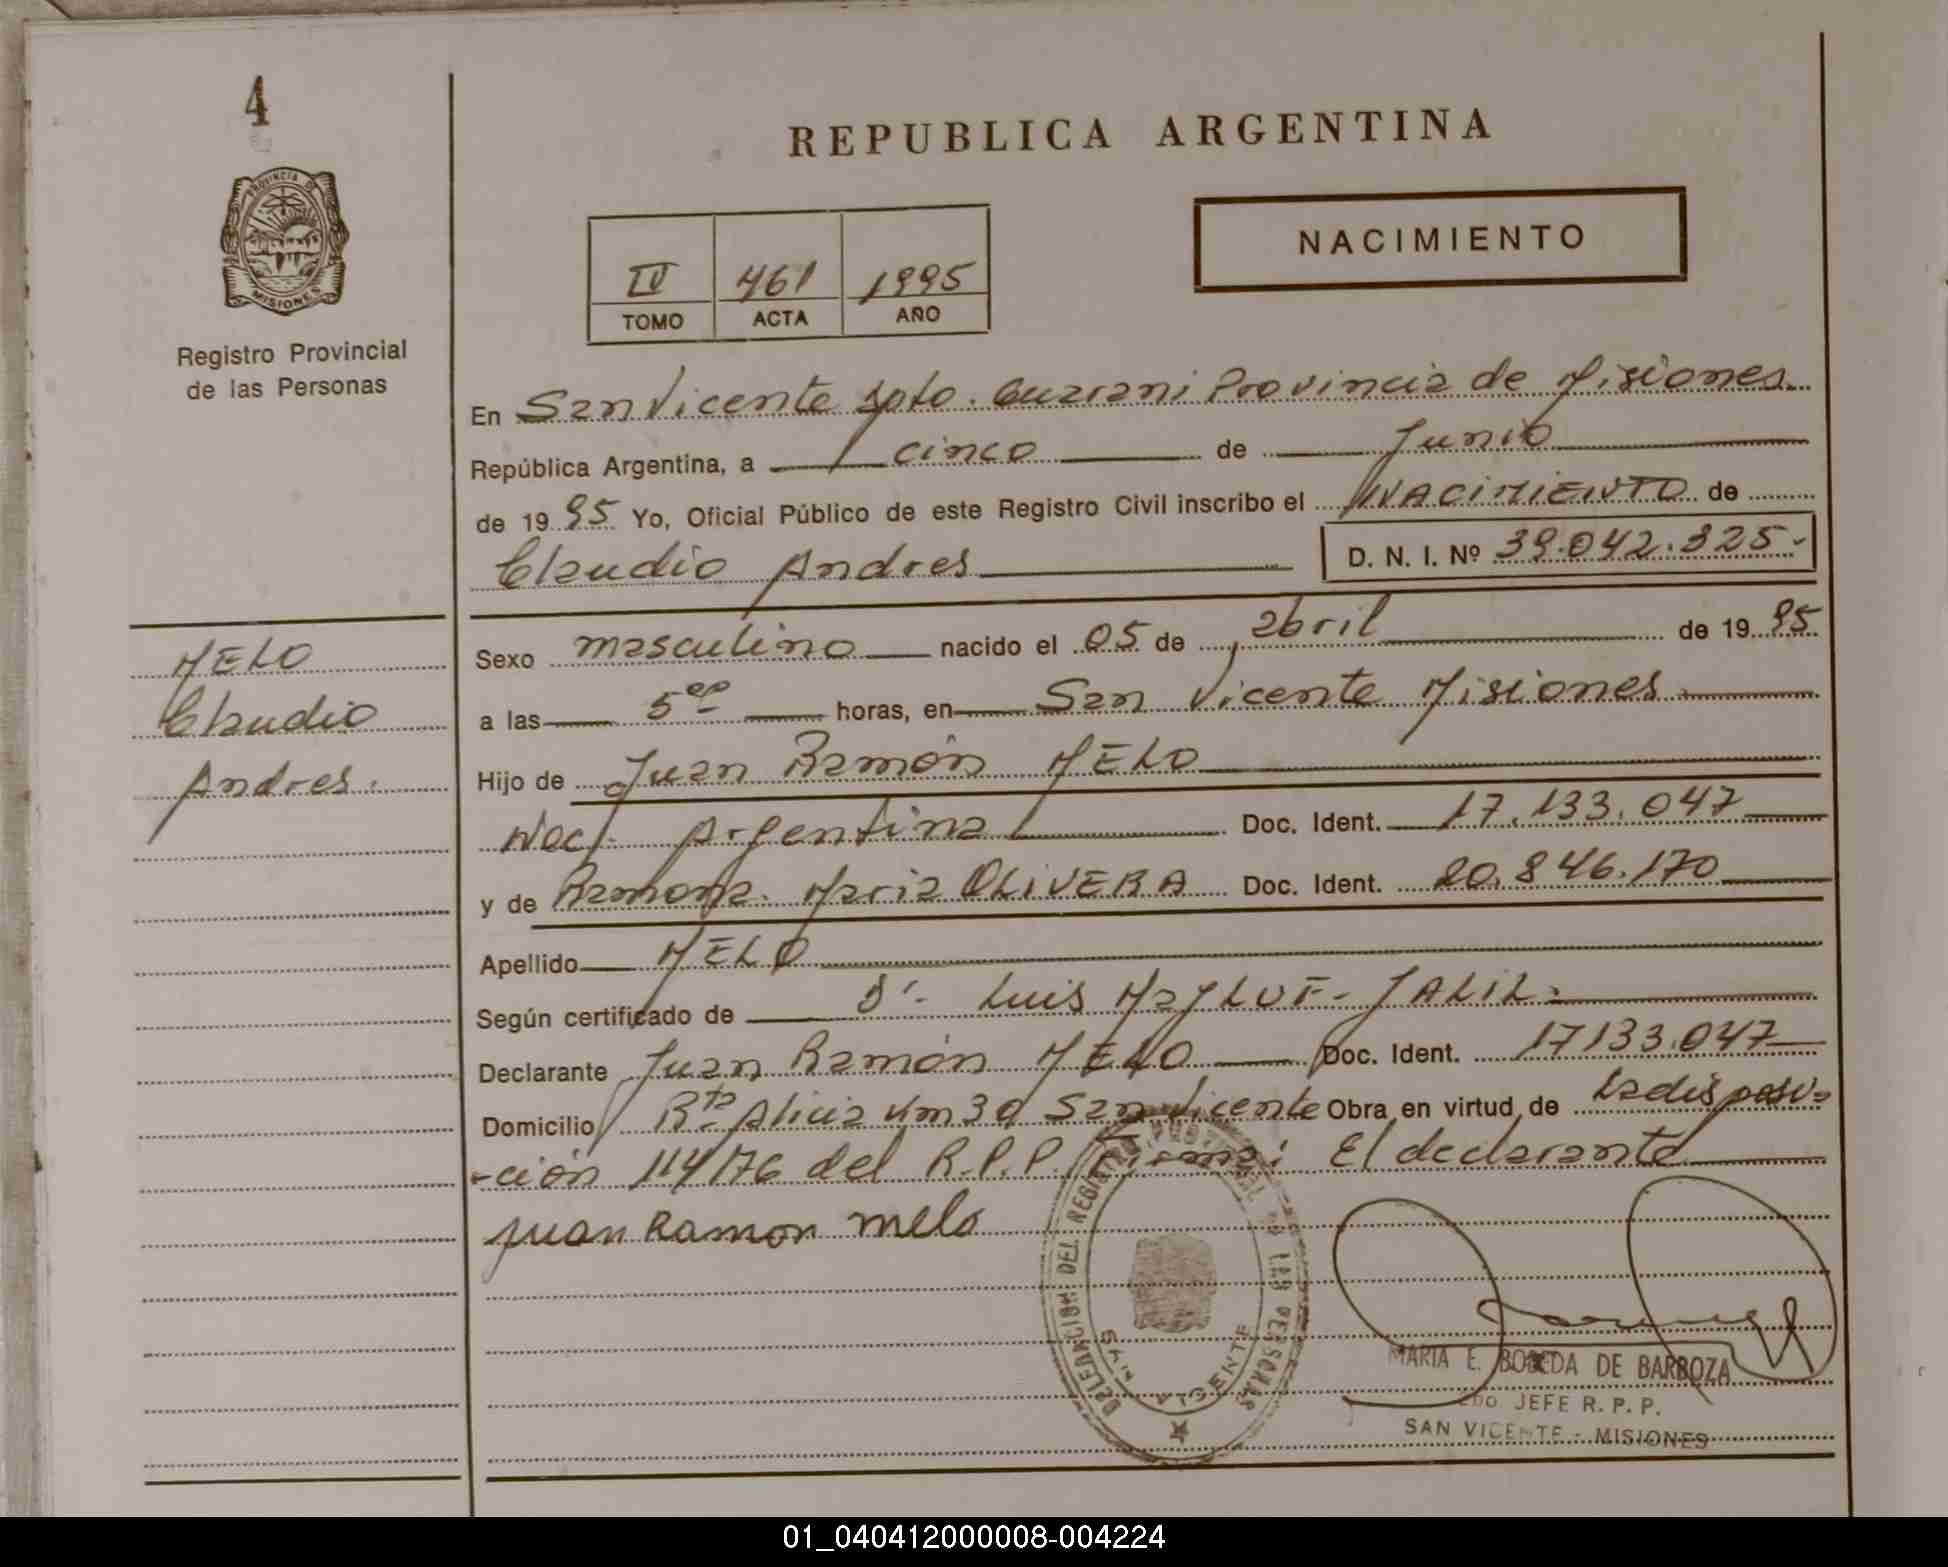 4
PROVINCIA DE
MISIONES
Registro Provincial
de las Personas
REPUBLICA ARGENTINA
IV 461 1995
TOMO ACTA AÑO
NACIMIENTO
En San Vicente Dpto. Guarani Provincia de Misiones.
República Argentina, a cinco de Junio
de 1995 Yo, Oficial Público de este Registro Civil inscribo el NACIMIENTO de
Claudio Andres D. N. I. Nº 39.042.325-
MELO
Claudio
Andres.
Sexo masculino nacido el 05 de abril de 1995
a las 5 00 horas, en San Vicente Misiones
Hijo de Juan Ramón MELO
Nac. Argentina Doc. Ident. 17.133.047
y de Ramona Maria OLIVERA Doc. Ident. 20.846.170
Apellido MELO
Según certificado de Dr. Luis MayLUF- JALIL.
Declarante Juan Ramón MELO Doc. Ident. 17133.047
Domicilio Rta Alicia Km 30 San Vicente Obra en virtud de La disposi-
-ción 114/76 del R.P.P. Firma: El declarante
Juan Ramon melo
DELEGACION DEL REGISTRO PROVINCIAL DE LAS PERSONAS
SAN VICENTE
MARIA E. BOBEDA DE BARBOZA
2DO. JEFE R. P. P.
SAN VICENTE - MISIONES
01_040412000008-004224